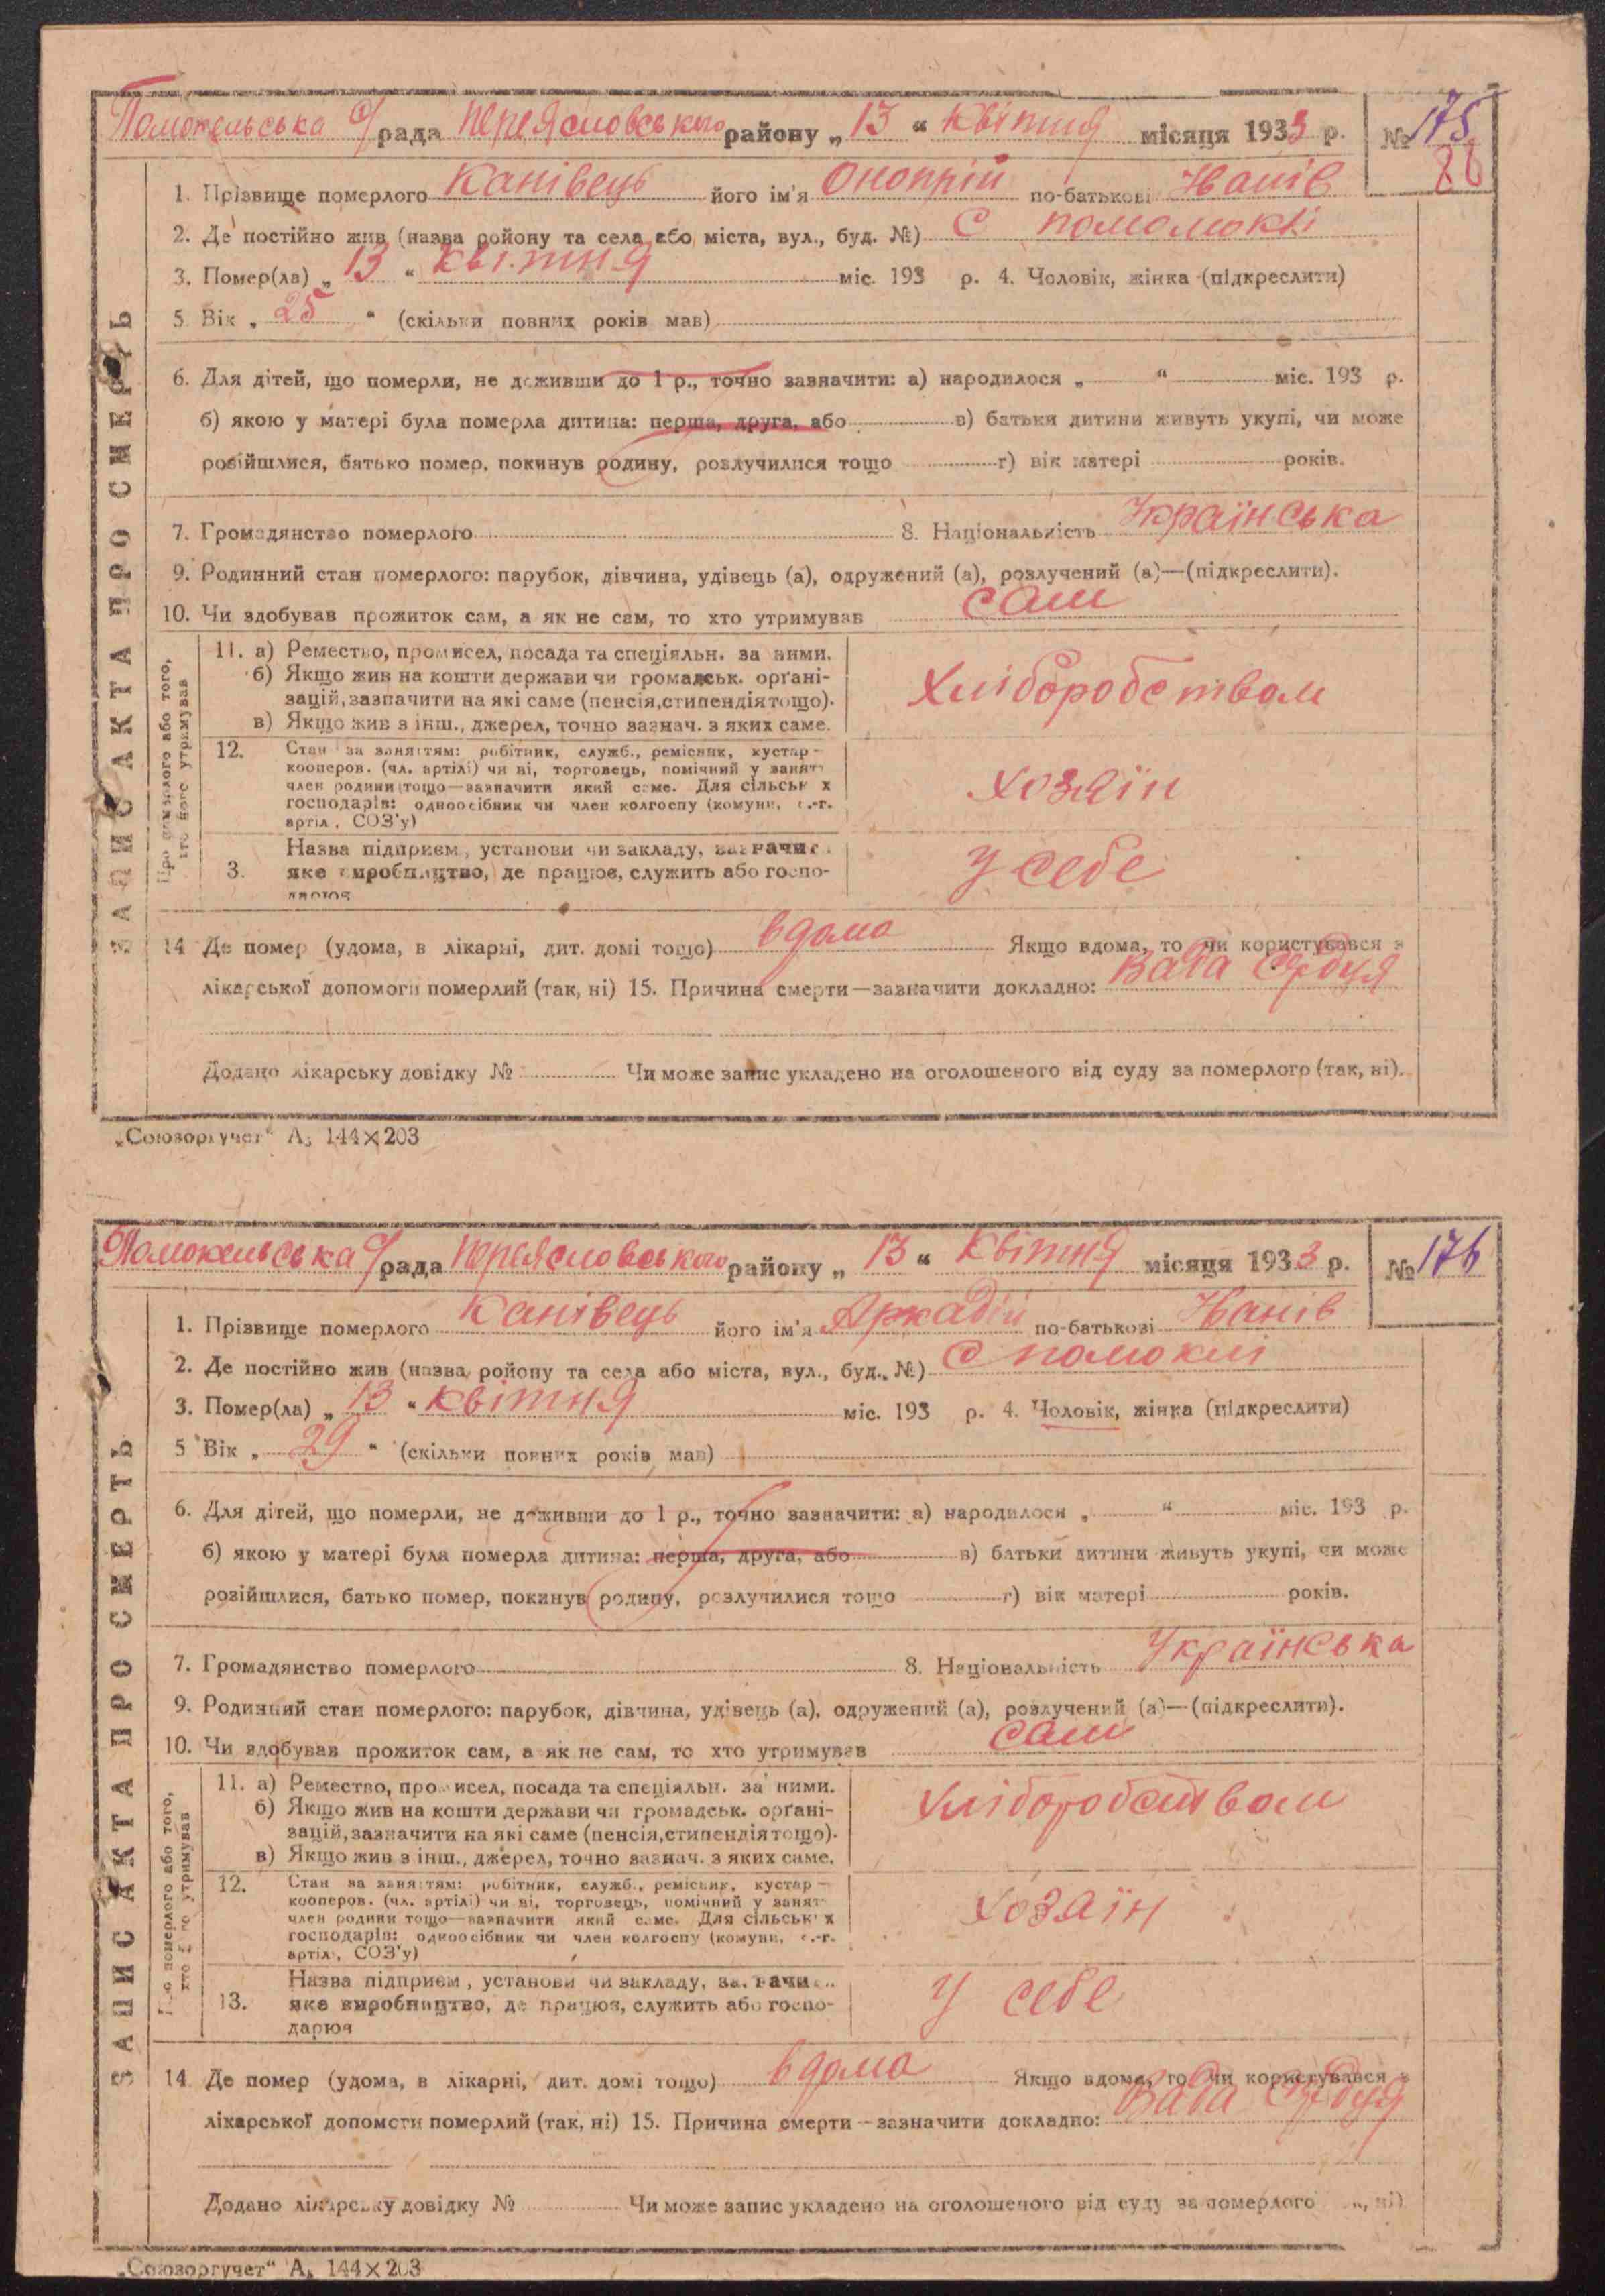 Помокельська с/рада Переясловського району „ 13 “ Квітня місяця 1933 р. № 175
86
1. Прізвище померлого Канівець його ім'я Онопрій по-батькові Іванів
2. Де постійно жив (назва ройону та села або міста, вул., буд. №) С
3. Помер(ла) „ 13 “ квітня міс. 193 р. 4. Чоловік, жінка (підкреслити)
5 Вік „ 25 “ (скільки повних років мав)
6. Для дітей, що померли, не доживши до 1 р., точно зазначити: а) народилося „ “ міс. 193 р.
б) якою у матері була померла дитина: перша, друга, або в) батьки дитини живуть укупі, чи може
розійшлися, батько помер, покинув родину, розлучилися тощо г) вік матері років.
7. Громадянство померлого 8. Національність Українська
9. Родинний стан померлого: парубок, дівчина, удівець (а), одружений (а), розлучений (а)—(підкреслити).
10. Чи здобував прожиток сам, а як не сам, то хто утримував сам
ЗАПИС АКТА ПРО СМЕРТЬ
Про померлого або того,
хто його утримував
11. а) Ремество, промисел, посада та спеціяльн. за ними.
б) Якщо жив на кошти держави чи громадськ. орґані-
зацій, зазначити на які саме (пенсія, стипендія тощо).
в) Якщо жив з інш., джерел, точно зазнач. з яких саме.
Хліборобством
12. Стан за заняттям: робітник, служб., ремісник, кустар –
кооперов. (чл. артілі) чи ні, торговець, помічний у занят
член родини тощо—зазначити який саме. Для сільськ х
господарів: одноосібник чи член колгоспу (комуни, с.-г.
артіл , СОЗ'у)
хозяїн
3. Назва підприєм , установи чи закладу, зазначит
яке виробництво, де працює, служить або госпо-
дарює
У себе
14 Де помер (удома, в лікарні, дит. домі тощо) вдома Якщо вдома, то чи користувався з
лікарської допомоги померлий (так, ні) 15. Причина смерти—зазначити докладно: Вада сердця
Додано лікарську довідку № Чи може запис укладено на оголошеного від суду за померлого (так, ні).
„Союзоргучет“ А₅ 144×203
Помокельська с/рада Переясловського району „ 13 “ Квітня місяця 1933 р. № 176
1. Прізвище померлого Канівець його ім'я Аркадій по-батькові Іванів
2. Де постійно жив (назва ройону та села або міста, вул., буд. №) С помоклі
3. Помер(ла) „ 13 “ квітня міс. 193 р. 4. Чоловік, жінка (підкреслити)
5 Вік „ 29 “ (скільки повних років мав)
6. Для дітей, що померли, не доживши до 1 р., точно зазначити: а) народилося „ “ міс. 193 р.
б) якою у матері була померла дитина: перша, друга, або в) батьки дитини живуть укупі, чи може
розійшлися, батько помер, покинув родину, розлучилися тощо г) вік матері років.
7. Громадянство померлого 8. Національність Українська
9. Родинний стан померлого: парубок, дівчина, удівець (а), одружений (а), розлучений (а)—(підкреслити).
10. Чи здобував прожиток сам, а як не сам, то хто утримував сам
ЗАПИС АКТА ПРО СМЕРТЬ
Про померлого або того,
хто його утримував
11. а) Ремество, промисел, посада та спеціяльн. за ними.
б) Якщо жив на кошти держави чи громадськ. орґані-
зацій, зазначити на які саме (пенсія, стипендія тощо).
в) Якщо жив з інш., джерел, точно зазнач. з яких саме.
Хліборобством
12. Стан за заняттям: робітник, служб., ремісник, кустар –
кооперов. (чл. артілі) чи ні, торговець, помічний у занят
член родини тощо—зазначити який саме. Для сільськ х
господарів: одноосібник чи член колгоспу (комуни, с.-г.
артіл , СОЗ'у)
хозяїн
13. Назва підприєм , установи чи закладу, зазначи
яке виробництво, де працює, служить або госпо-
дарює
У себе
14 Де помер (удома, в лікарні, дит. домі тощо) вдома Якщо вдома, то чи користувався з
лікарської допомоги померлий (так, ні) 15. Причина смерти—зазначити докладно: Вада сердця
Додано лікарську довідку № Чи може запис укладено на оголошеного від суду за померлого к, ні)
„Союзоргучет“ А₅ 144×203